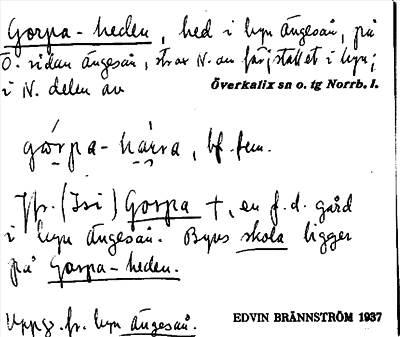 Gorpa-heden, hed i byn Ängesån, på
Ö. sidan Ängesån, strax N. om färjstället i byn;
i N. delen av Överkalix sn o. tg Norrb. l.
gårpa-hæ̀ɩra, bf. fem.
Jfr. (Isi) Gorpa †, en f.d. gård
i byn Ängesån. Byns skola ligger
på Gorpa-heden.
Uppg. fr. byn Ängesån.
EDVIN BRÄNNSTRÖM 1937